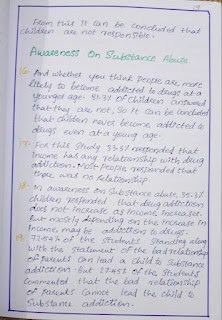 From this it can be concluded that
children are not responsible.
Awareness On Substance Abuse
16. And whether you think people are more
likely to become addicted to drugs at a
younger age. 51.3% of children answered
that they are not, So it can be concluded
that children never become addicted to
drugs even at a young age.
17. For this study 53.3% responded that
Income has any relationship with drug
addiction. Most People responded that
there was no relationship.
18. In awareness on Substance abuse, 35.3%
children responded that drug addiction
does not increase as Income increases.
But mostly depending on the increase in
Income, may be addiction to drugs.
19. 72.54% of the students Standing along
with the Statement of the bad relationship
of parents can lead a child to Substance
addiction. But 27.45% of the Students
commented that the bad relationship
of parents cannot lead the child to
Substance addiction.